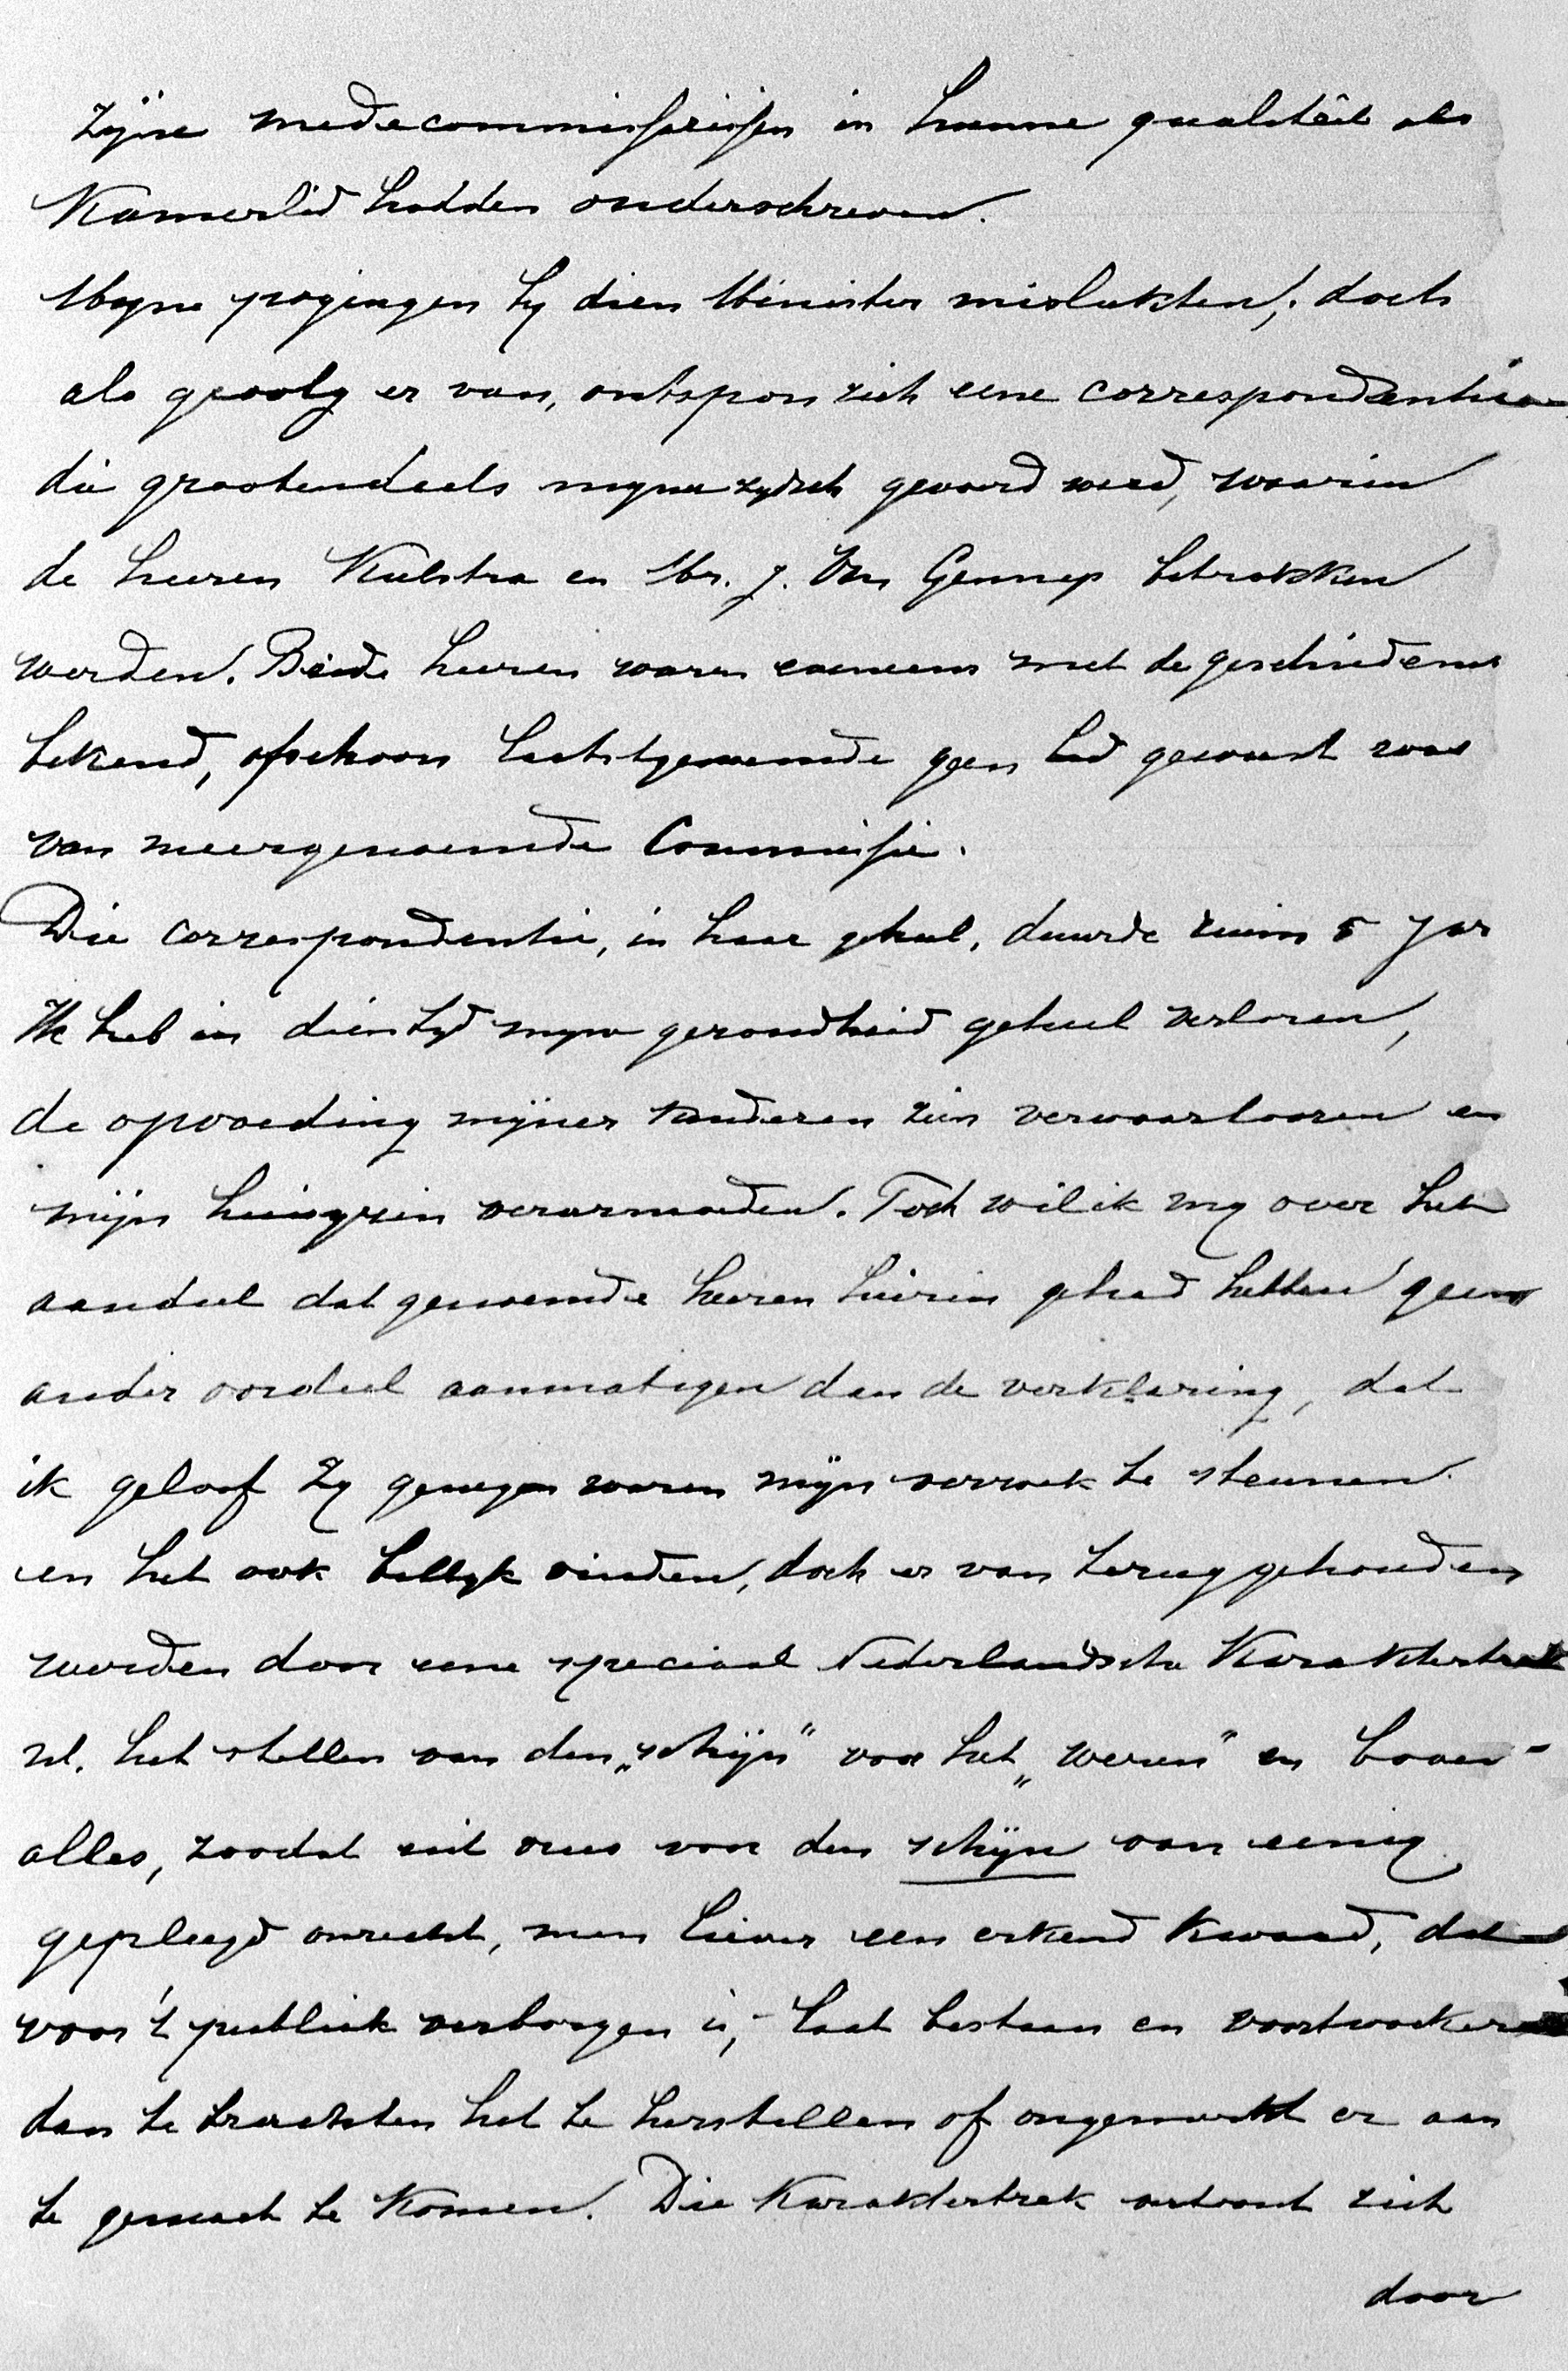 zijne medecommissarissen in hunne qualiteit als
Kamerlid hadden onderschreven.
Mijne pogingen bij dien Minister mislukten; doch
als gevolg er van, ontspon zich eene correspondentie
die grootendeels mijnerzijdsch gevoerd werd, waarin
de heeren Kielstra en Mr. J. Van Gennep betrokken
werden. Beide heeren waren eveneens met de geschiedenis
bekend, ofschoon laatstgenoemde geen lid geweest was
van meergenoemde Commissie.
Die correspondentie, in haar geheel, duurde ruim 5 jaar
Ik heb in dien tijd mijne gezondheid geheel verloren,
de opvoeding mijner kinderen zien verwaarloozen en
mijn huisgezin verarmoeden. Toch wil ik mij over het
aandeel dat genoemde heeren hierin gehad hebben geen
ander oordeel aanmatigen dan de verklaring, dat
ik geloof zij genegen waren mijn verzoek te steunen
en het ook billijk vinden, doch er van teruggehouden
worden door eene speciaal Nederlandsche Karaktertrek
nl. het stellen van den „schijn" voor het „wezen" en boven
alles, zoodat uit vrees voor den schijn van eenig
gepleegd onrecht, men liever een erkend kwaad, dat
voor 't publiek verborgen is, laat bestaan en voortwoekeren
dan te trachten het te herstellen of ongemerkt er aan
te gemoet te komen. Die Karaktertrek vertoont zich
door